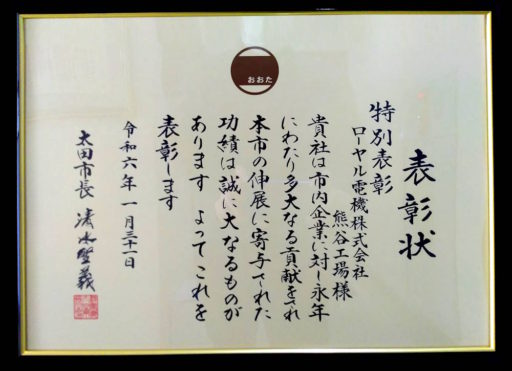 おおた
表彰状
特別表彰
ローヤル電機株式会社
熊谷工場様
貴社は市内企業に対し永年
にわたり多大なる貢献をされ
本市の伸展に寄与された
功績は誠に大なるものが
あります よってこれを
表彰します
令和六年一月三十一日
太田市長 清水聖義